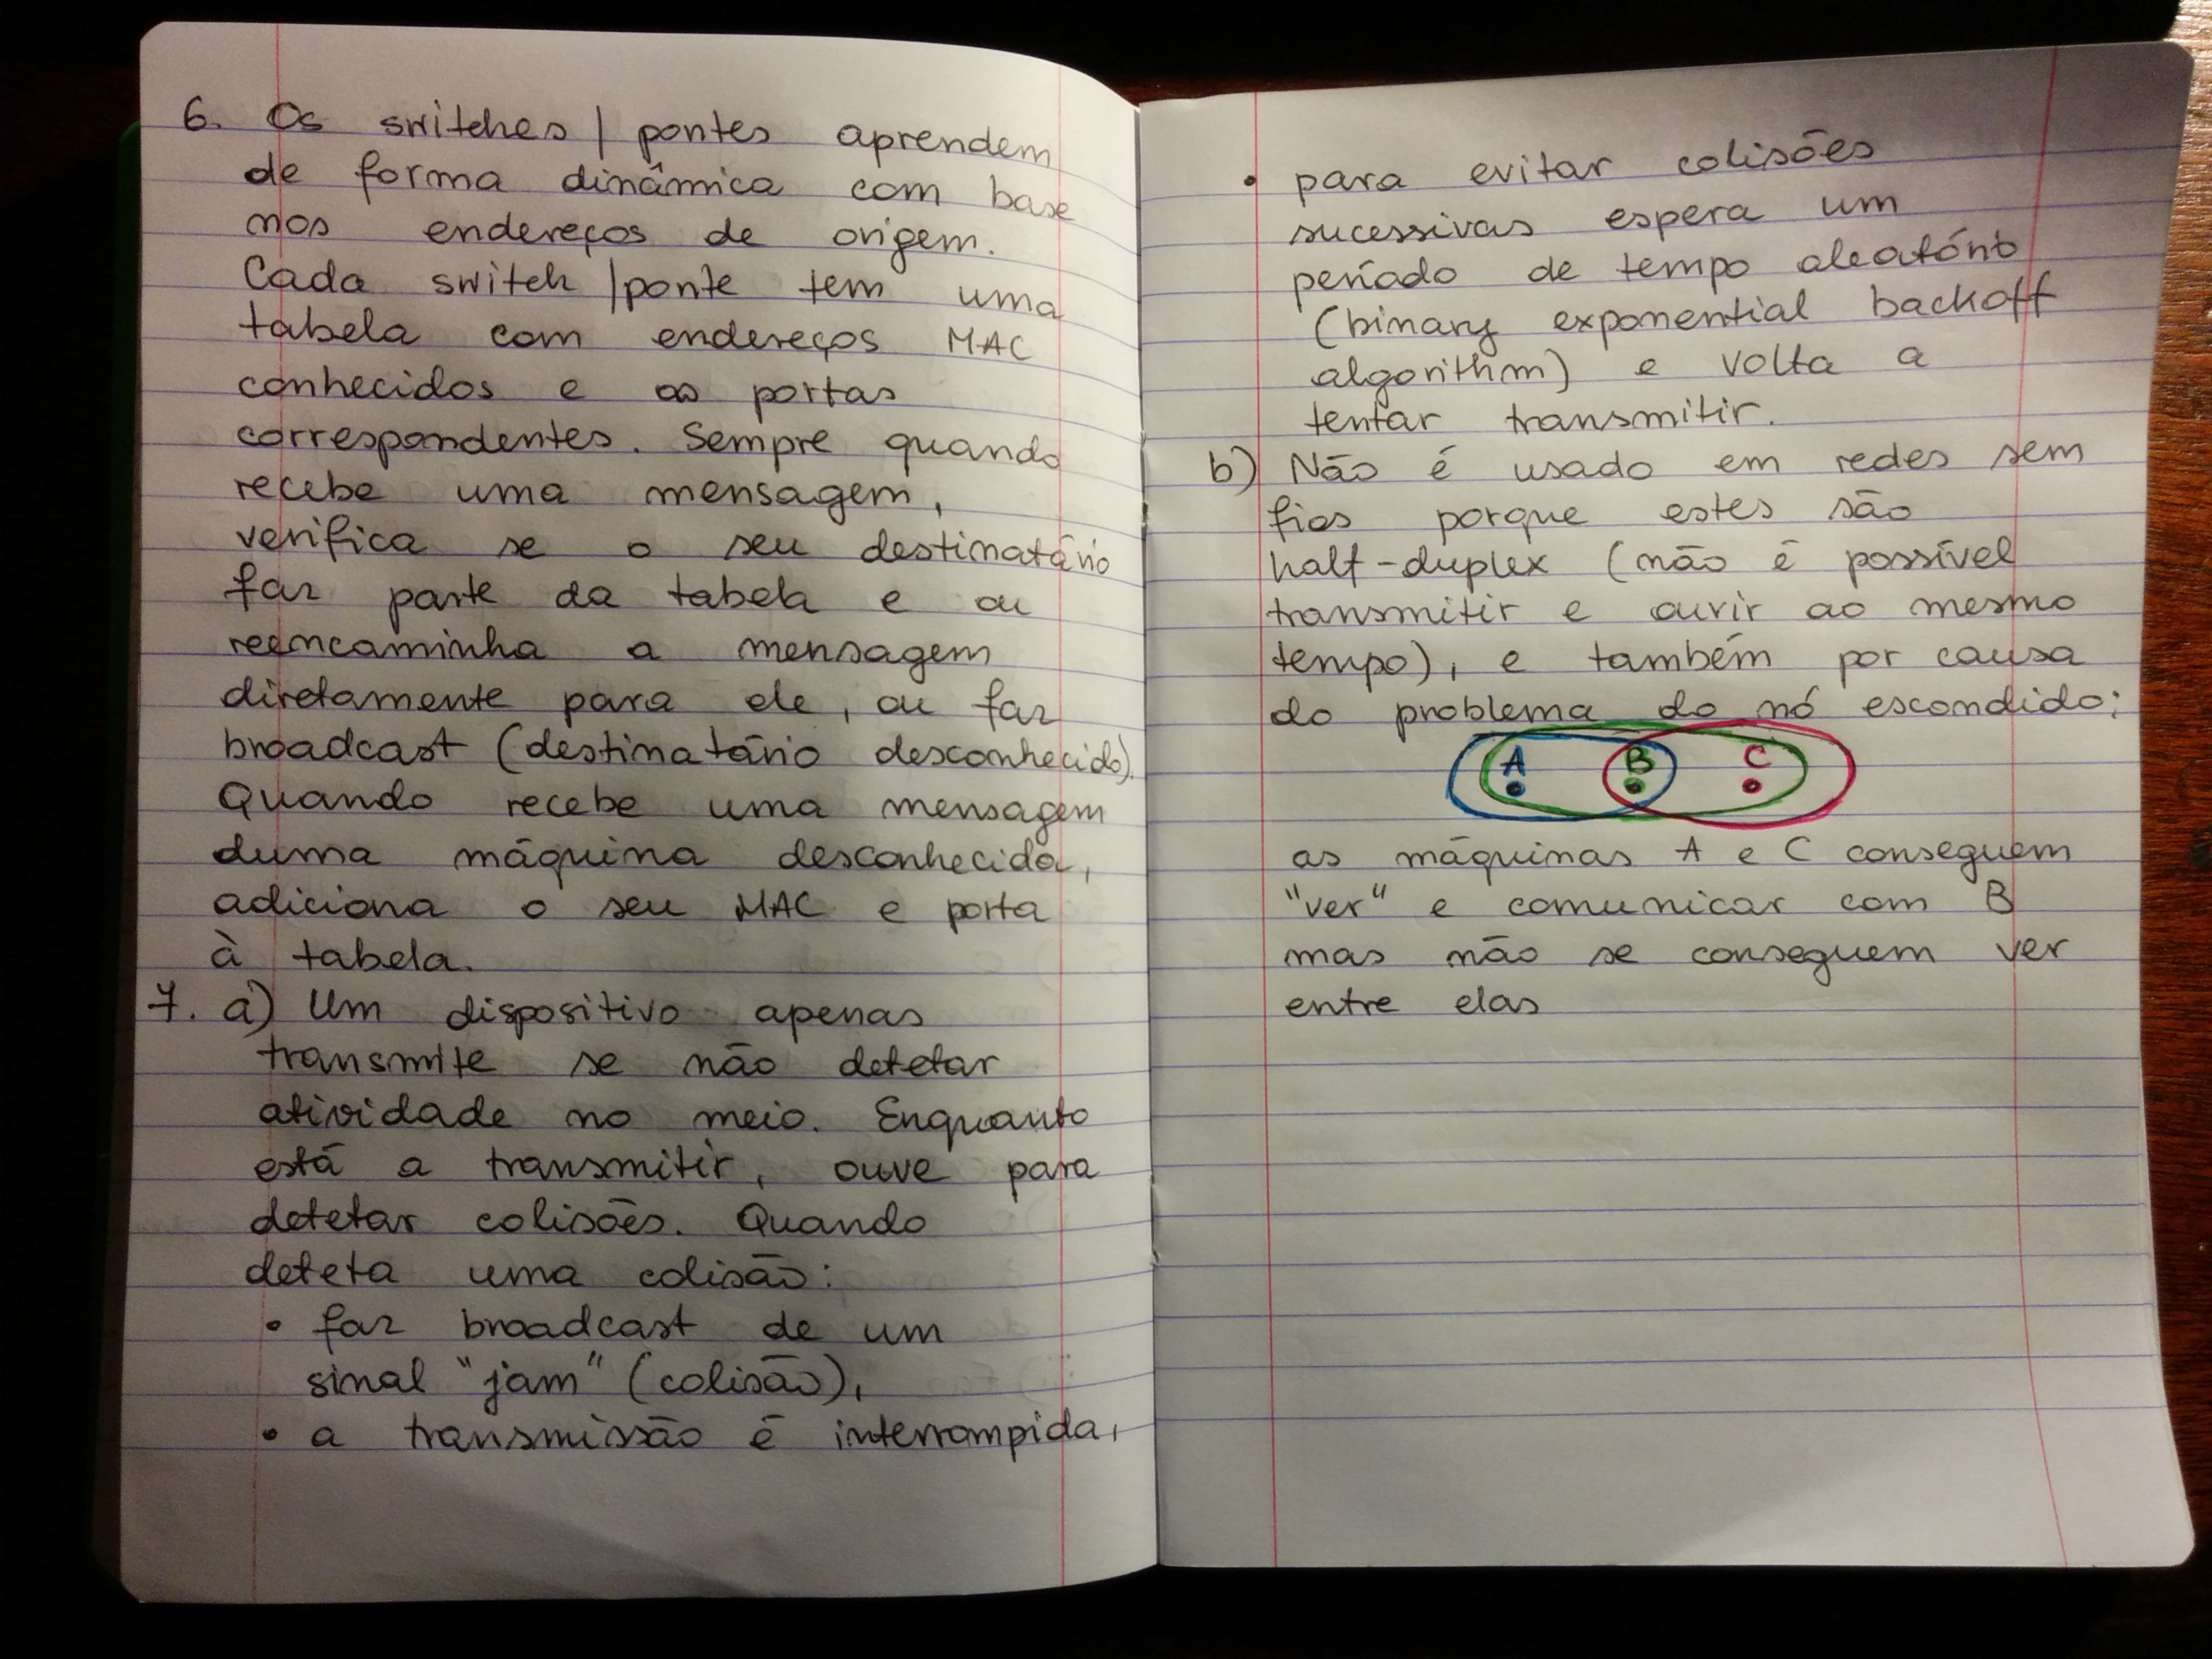 6. Os switches / pontes aprendem
de forma dinâmica com base
nos endereços de origem.
Cada switch / ponte tem uma
tabela com endereços MAC
conhecidos e as portas
correspondentes. Sempre quando
recebe uma mensagem,
verifica se o seu destinatário
faz parte da tabela e ou
reencaminha a mensagem
diretamente para ele, ou faz
broadcast (destinatário desconhecido).
Quando recebe uma mensagem
duma máquina desconhecida,
adiciona o seu MAC e porta
à tabela.
7. a) Um dispositivo apenas
transmite se não detetar
atividade no meio. Enquanto
está a transmitir, ouve para
detetar colisões. Quando
deteta uma colisão:
• faz broadcast de um
sinal "jam" (colisão),
• a transmissão é interrompida,
• para evitar colisões
sucessivas espera um
período de tempo aleatório
(binary exponential backoff
algorithm) e volta a
tentar transmitir.
b) Não é usado em redes sem
fios porque estes são
half-duplex (não é possível
transmitir e ouvir ao mesmo
tempo), e também por causa
do problema do nó escondido:
A B C
as máquinas A e C conseguem
"ver" e comunicar com B
mas não se conseguem ver
entre elas